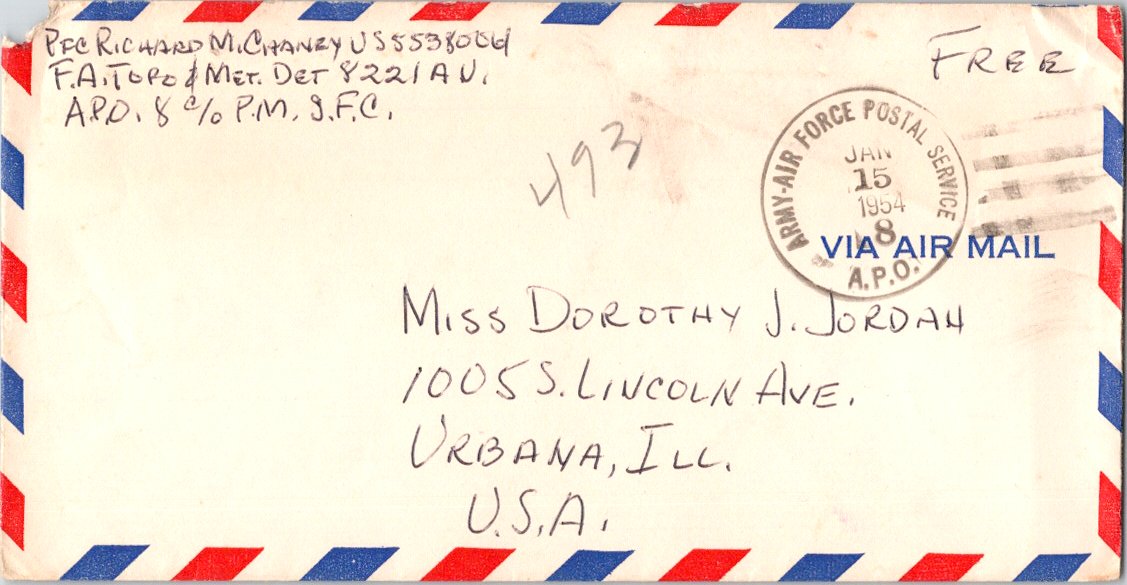 PFC RICHARD M. CHANEY US 55380064
F.A. TOPO & MET. DET 8221 A U.
A.P.O. 8 c/o P.M. S.F.C.
FREE
493
ARMY-AIR FORCE POSTAL SERVICE
JAN
15
1954
8
A.P.O.
VIA AIR MAIL
MISS DOROTHY J. JORDAN
1005 S. LINCOLN AVE.
URBANA, ILL.
U.S.A.